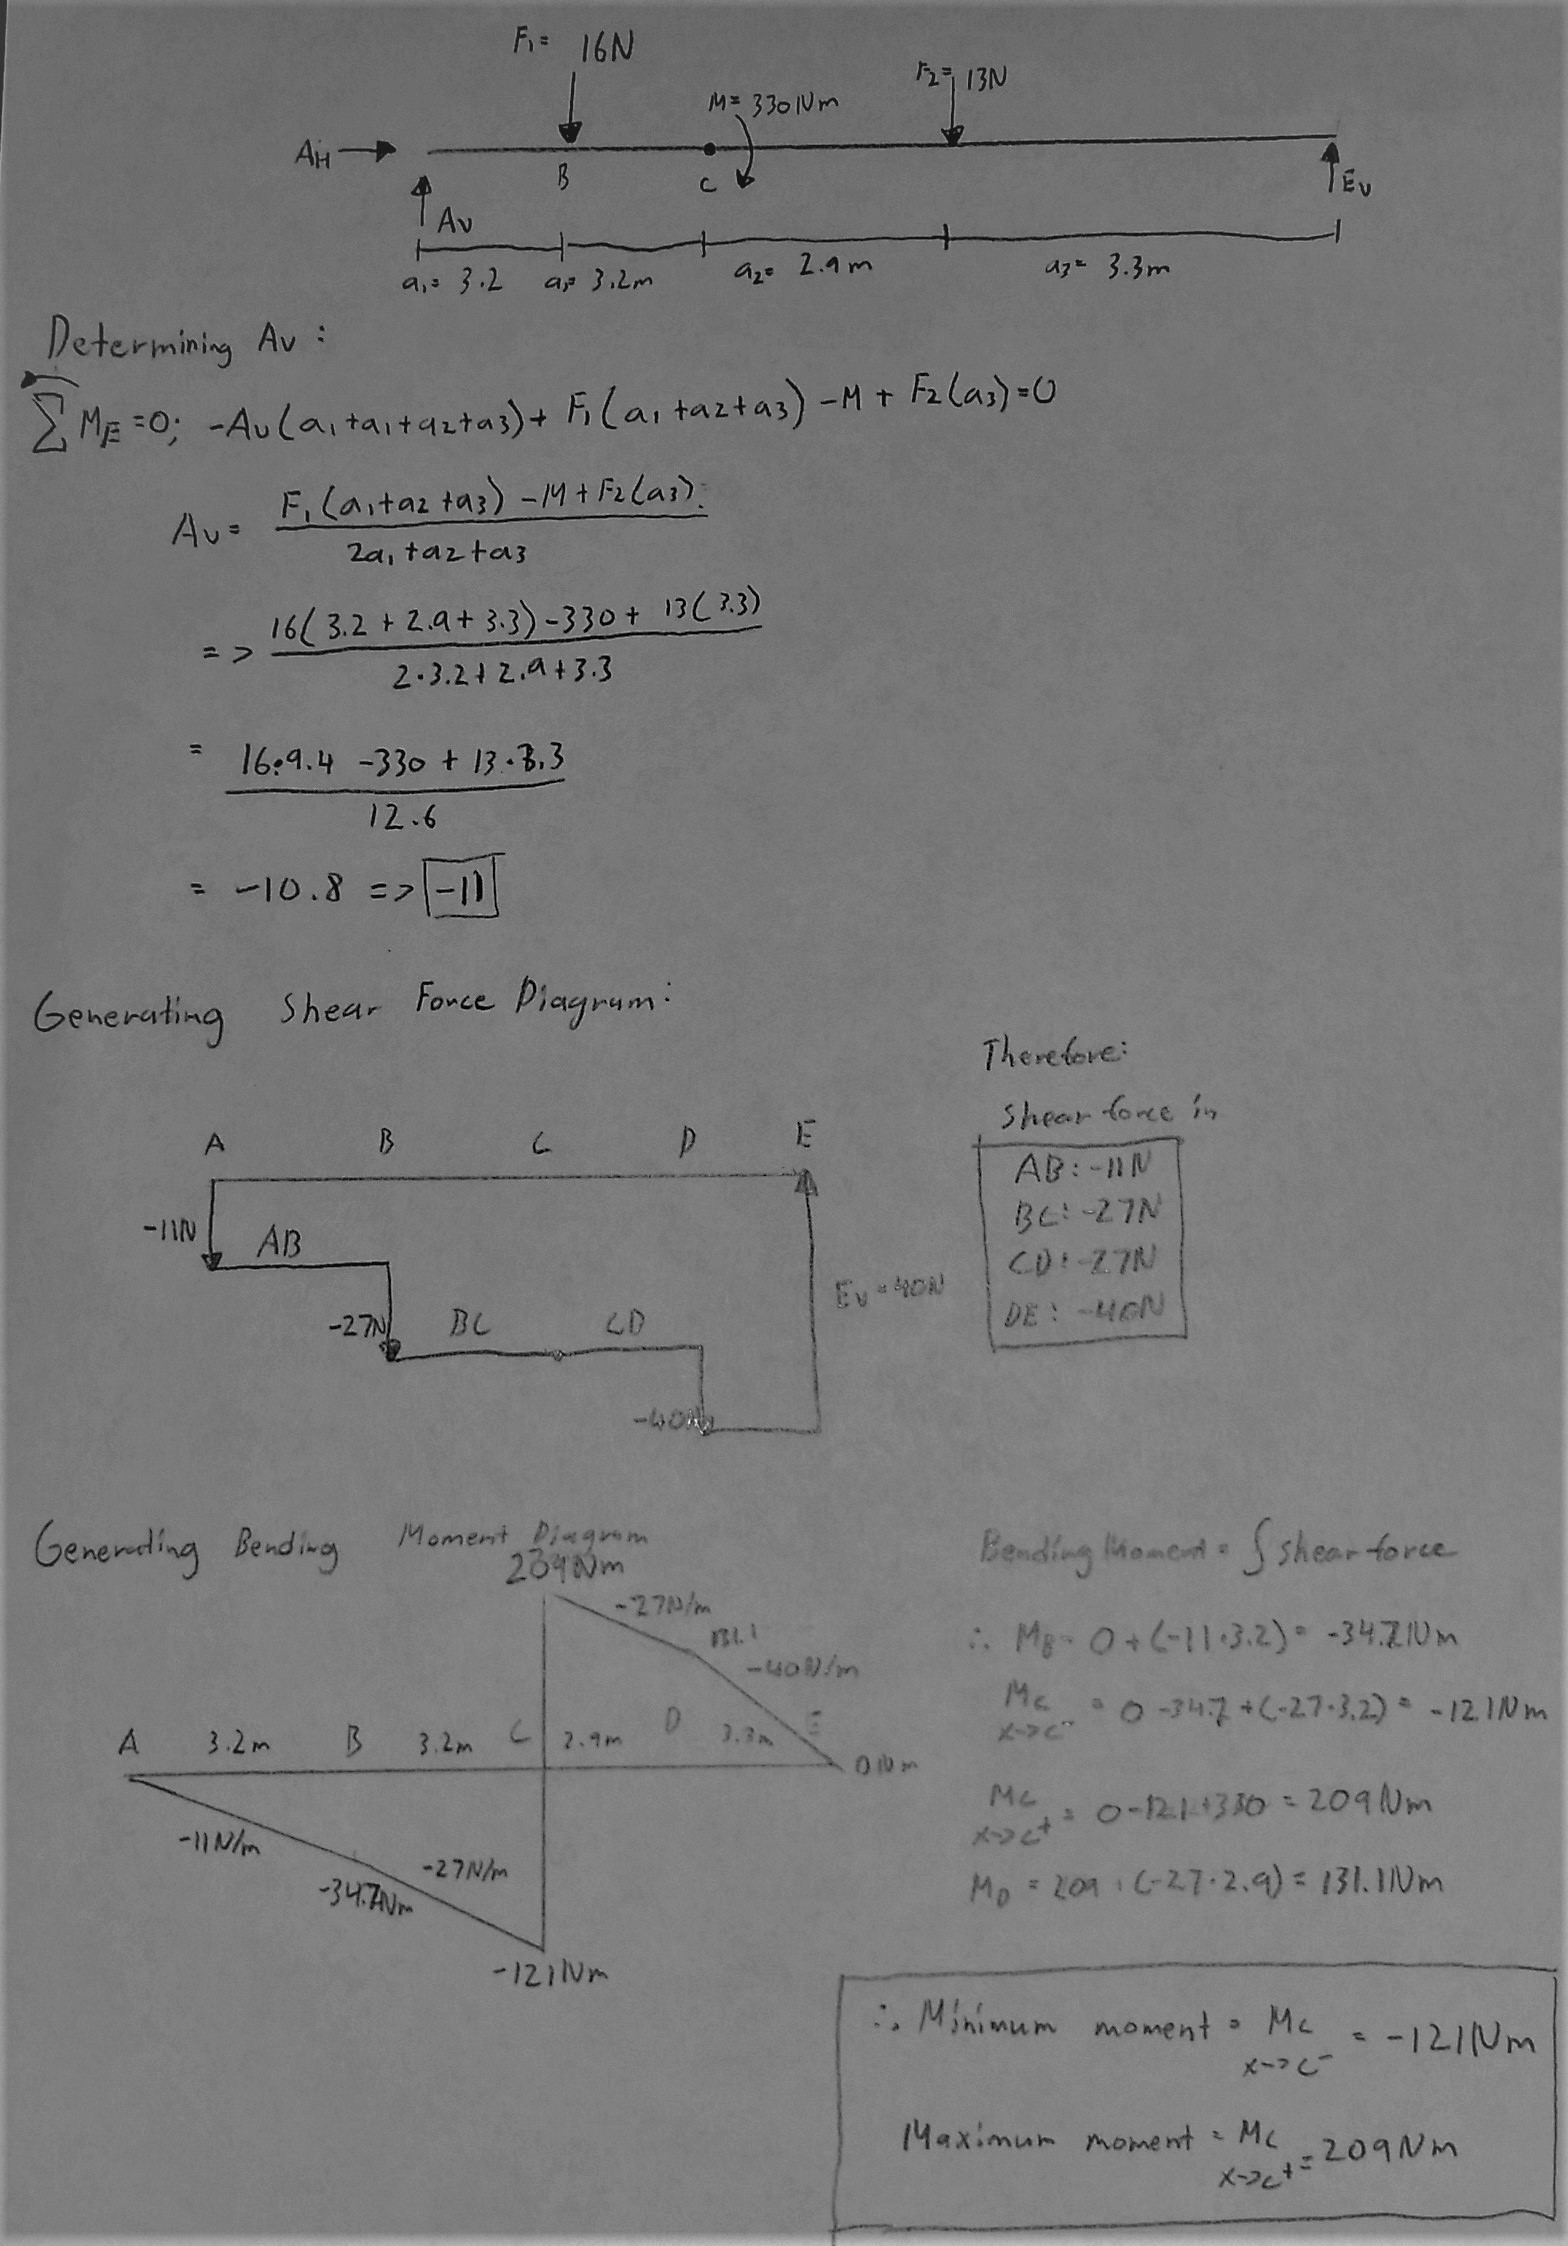 F₁ = 16N
F₂ = 13N
M = 330Nm
A_H
B
C
E_v
A_v
a₁ = 3.2 a₁ = 3.2m a₂ = 2.9m a₃ = 3.3m
Determining Av :
∑ M_E = 0; -Av(a₁+a₁+a₂+a₃) + F₁(a₁+a₂+a₃) - M + F₂(a₃) = 0
Av = F₁(a₁+a₂+a₃) - M + F₂(a₃)
2a₁+a₂+a₃
=> 16(3.2 + 2.9 + 3.3) - 330 + 13(3.3)
2·3.2 + 2.9 + 3.3
= 16·9.4 - 330 + 13·3.3
12.6
= -10.8 => -11
Generating Shear Force Diagram:
Therefore:
Shear force in
AB: -11N
BC: -27N
CD: -27N
DE: -40N
A B C D E
-11N
AB
-27N
BC CD
-40N
Ev = 40N
Generating Bending Moment Diagram
209Nm
-27N/m
131.1
-40N/m
A 3.2m B 3.2m C 2.9m D 3.3m E
0Nm
-11N/m
-27N/m
-34.7Nm
-121Nm
Bending Moment = ∫ shear force
∴ M_B = 0 + (-11·3.2) = -34.7Nm
Mc x->c⁻ = 0 -34.7 + (-27·3.2) = -121Nm
Mc x->c⁺ = 0 -121 + 330 = 209Nm
M_D = 209 + (-27·2.9) = 131.1Nm
∴ Minimum moment = Mc x->c⁻ = -121Nm
Maximum moment = Mc x->c⁺ = 209Nm